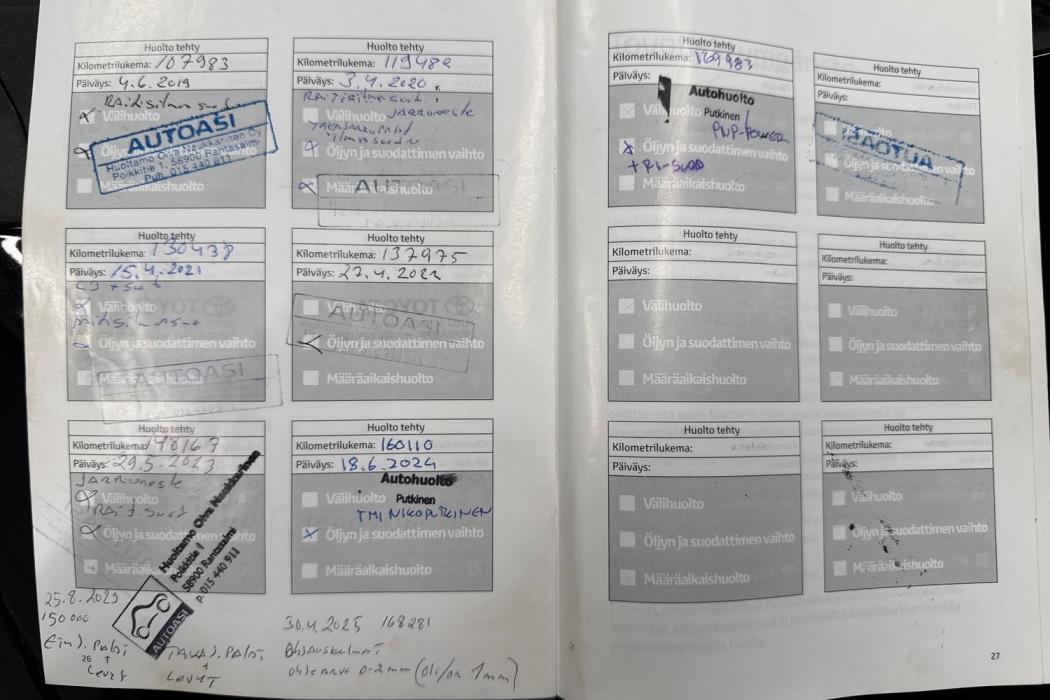 Huolto tehty
Kilometrilukema: 107983
Päiväys: 4.6.2019
Raitisilman suod
Välihuolto
AUTOASI
Huoltamo Oiva Naukkarinen Oy
Poikkitie 1, 58900 Rantasalmi
Puh. 015 440 911
Öljyn
Määräaikaishuolto
Huolto tehty
Kilometrilukema: 119482
Päiväys: 3.4.2020
Raitisilman
Välihuolto Jarruneste
Öljyn ja suodattimen vaihto
Määräaikaishuolto
AUTOASI
Huolto tehty
Kilometrilukema: 130438
Päiväys: 15.4.2021
Välihuolto
Öljyn ja suodattimen vaihto
AUTOASI
Huolto tehty
Kilometrilukema: 137975
Päiväys: 27.4.2022
Välihuolto
AUTOASI
Öljyn ja suodattimen vaihto
Määräaikaishuolto
Huolto tehty
Kilometrilukema: 148167
Päiväys: 29.5.2023
Jarruneste
Välihuolto
Rait. suod
Öljyn ja suodattimen
Huoltamo Oiva Naukkarinen
Poikkitie 1
58900 Rantasalmi
p. 015 440 911
AUTOASI
Huolto tehty
Kilometrilukema: 160110
Päiväys: 18.6.2024
Autohuolto
Putkinen
Välihuolto
TMI NIKO PUTKINEN
Öljyn ja suodattimen vaihto
Määräaikaishuolto
25.8.2023
150 000
Etu J. Palat
+
Levyt
Taka J. Palat
+
Levyt
30.4.2025 168281
Ohjauskulmat
ohjearvo 0-2mm (oli/on 1mm)
Huolto tehty
Kilometrilukema: 169983
Päiväys:
Autohuolto
Putkinen
Välihuolto
PNP-POWER
Öljyn ja suodattimen vaihto
+ RI-SUOD
Määräaikaishuolto
Huolto tehty
Kilometrilukema:
Päiväys:
Öljyn ja suodattimen vaihto
Määräaikaishuolto
Huolto tehty
Kilometrilukema:
Päiväys:
Välihuolto
Öljyn ja suodattimen vaihto
Määräaikaishuolto
Huolto tehty
Kilometrilukema:
Päiväys:
Välihuolto
Öljyn ja suodattimen vaihto
Määräaikaishuolto
Huolto tehty
Kilometrilukema:
Päiväys:
Välihuolto
Öljyn ja suodattimen vaihto
Määräaikaishuolto
Huolto tehty
Kilometrilukema:
Päiväys:
Välihuolto
Öljyn ja suodattimen vaihto
Määräaikaishuolto
27